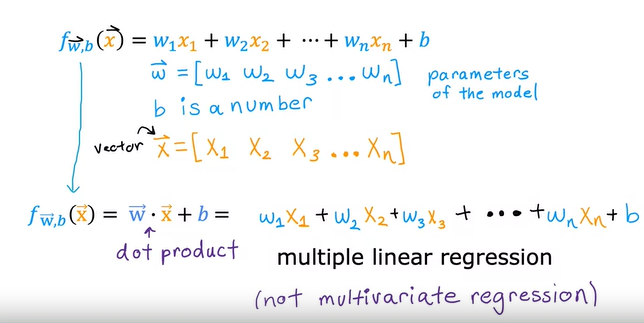 f_w⃗,b(x⃗) = w₁x₁ + w₂x₂ + ⋯ + wₙxₙ + b
w⃗ = [w₁ w₂ w₃ ... wₙ] parameters
of the model
b is a number
vector x⃗ = [X₁ X₂ X₃ ... Xₙ]
f_w⃗,b(x⃗) = w⃗ · x⃗ + b = w₁X₁ + w₂X₂ + w₃X₃ + ••• + wₙXₙ + b
dot product
multiple linear regression
(not multivariate regression)